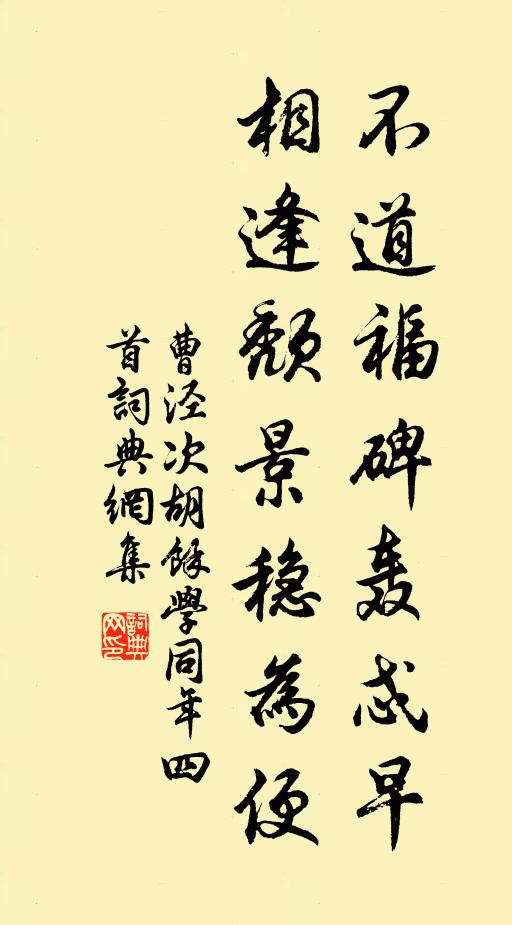 不道福碑轰忒早
相逢颓景稳為便
曹泾次胡餘學同年四
首詞典網集
詞典
网印